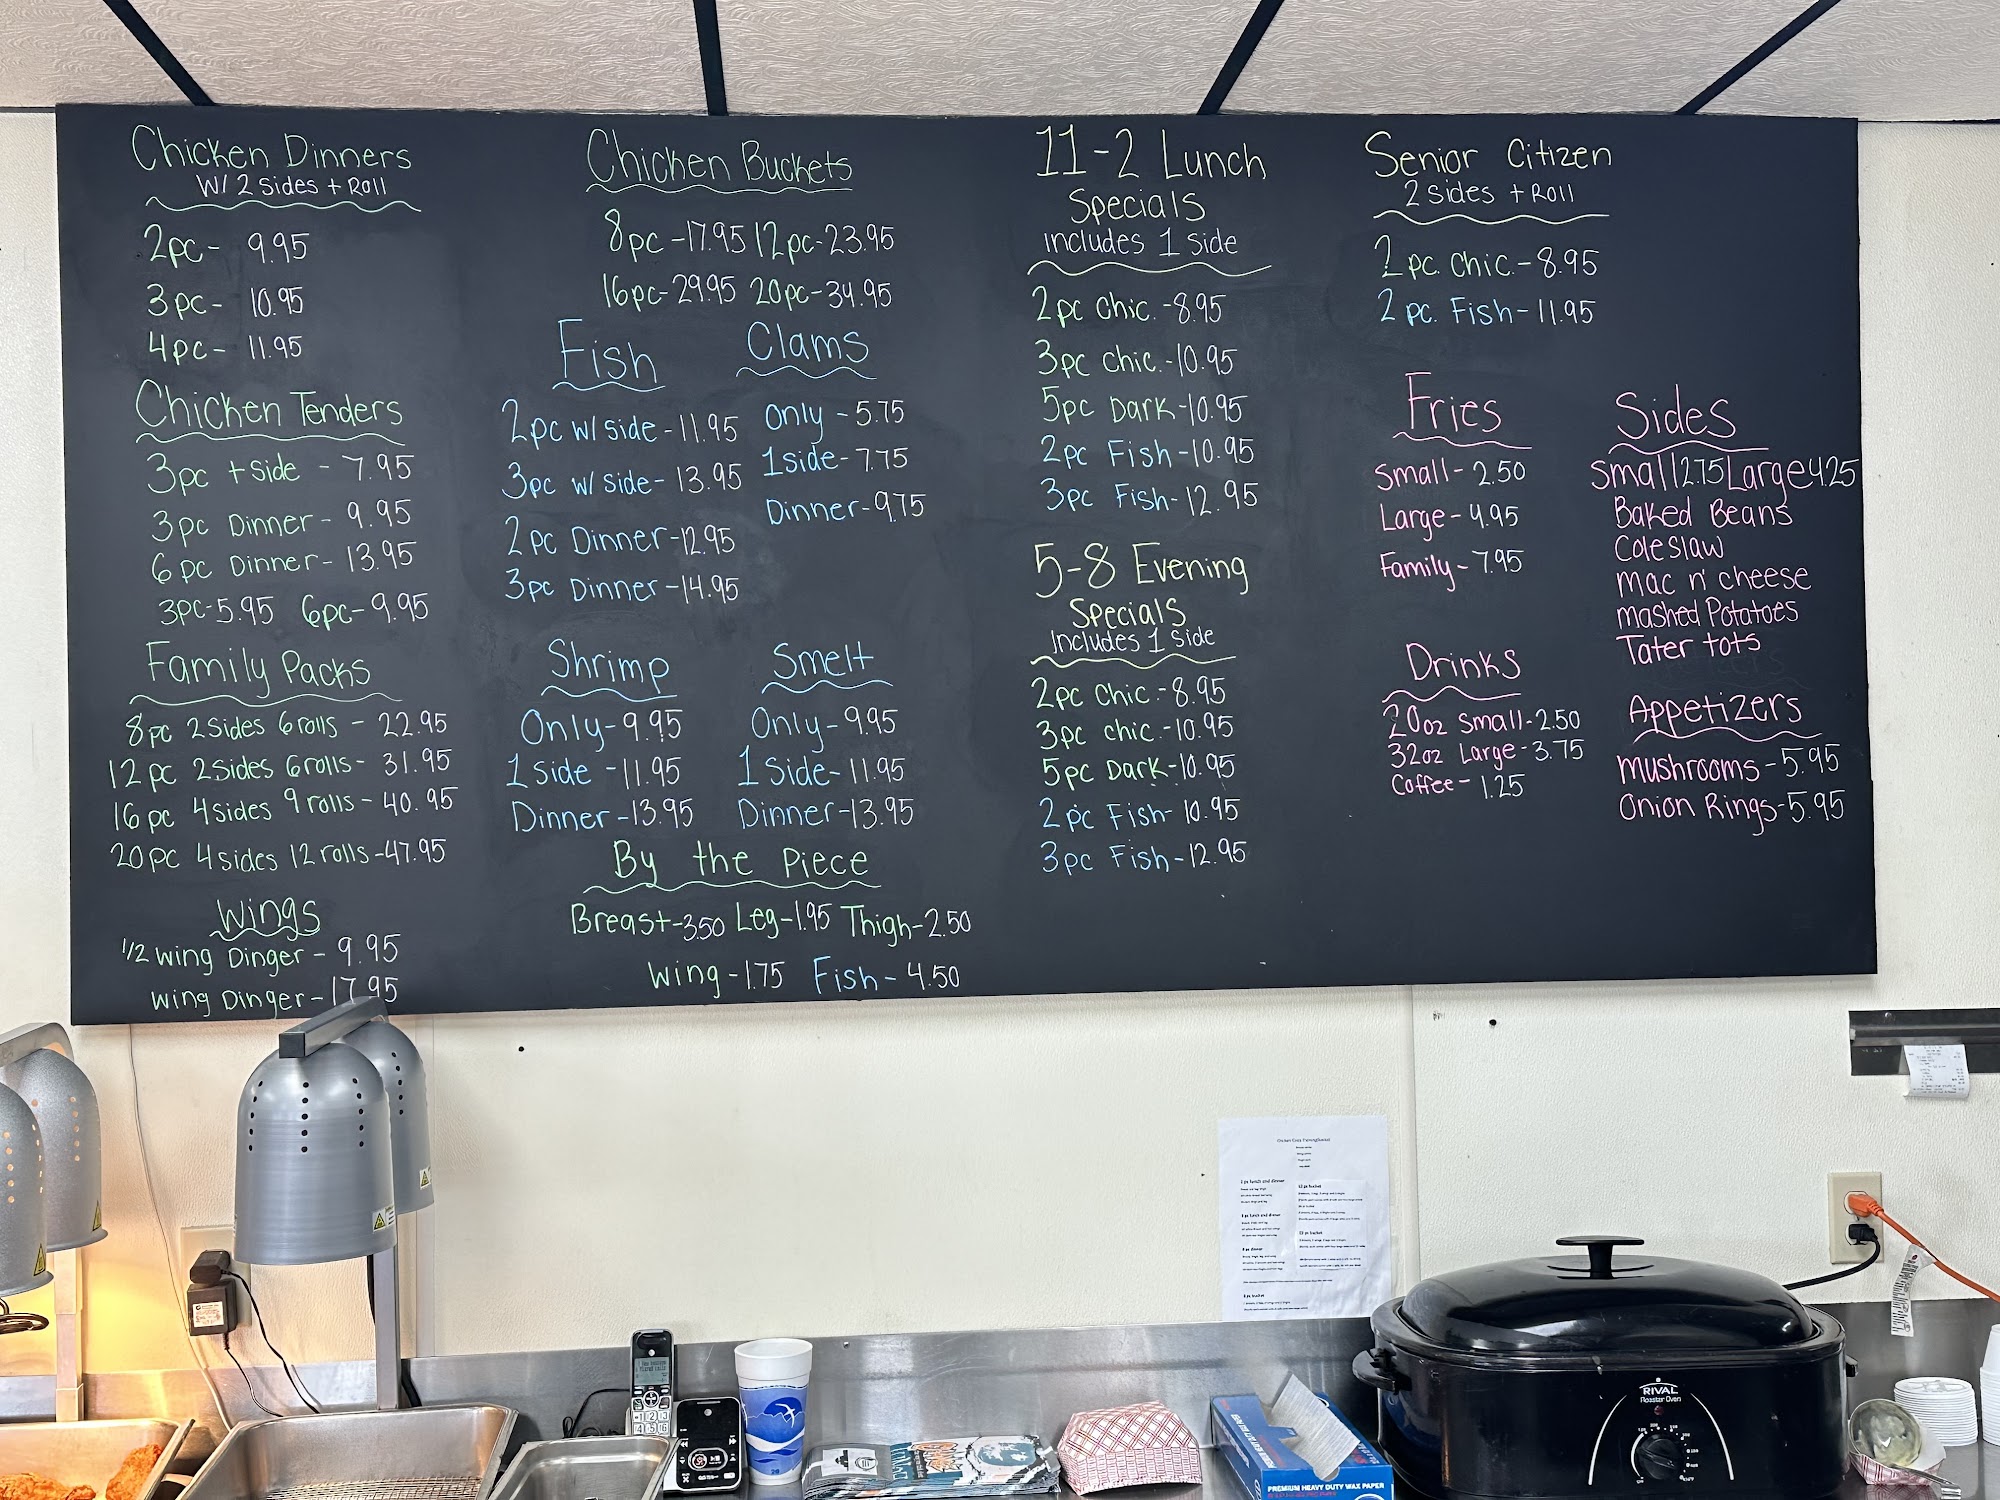 Chicken Dinners
W/ 2 Sides + Roll
2pc- 9.95
3pc- 10.95
4pc- 11.95
Chicken Tenders
3pc + side - 7.95
3pc Dinner- 9.95
6pc Dinner- 13.95
3pc-5.95 6pc-9.95
Family Packs
8pc 2Sides 6rolls - 22.95
12pc 2Sides 6rolls- 31.95
16pc 4sides 9rolls- 40.95
20pc 4sides 12rolls-47.95
Wings
1/2 Wing Dinger- 9.95
Wing Dinger-17.95
Chicken Buckets
8pc-17.95 12pc-23.95
16pc-29.95 20pc-34.95
Fish
2pc w/side-11.95
3pc w/side-13.95
2pc Dinner-12.95
3pc Dinner-14.95
Clams
Only-5.75
1side-7.75
Dinner-9.75
Shrimp
Only-9.95
1 side -11.95
Dinner-13.95
Smelt
Only-9.95
1 Side-11.95
Dinner-13.95
By the Piece
Breast-3.50 Leg-1.95 Thigh-2.50
Wing-1.75 Fish-4.50
11-2 Lunch
Specials
includes 1 side
2pc Chic.-8.95
3pc Chic.-10.95
5pc Dark-10.95
2pc Fish-10.95
3pc Fish-12.95
5-8 Evening
Specials
Includes 1 Side
2pc Chic.-8.95
3pc Chic.-10.95
5pc Dark-10.95
2pc Fish-10.95
3pc Fish-12.95
Senior Citizen
2 Sides + Roll
2pc. Chic.-8.95
2 pc. Fish-11.95
Fries
Small-2.50
Large-4.95
Family-7.95
Drinks
20oz Small-2.50
32oz Large-3.75
Coffee-1.25
Sides
Small2.75Large4.25
Baked Beans
Coleslaw
Mac n' cheese
Mashed Potatoes
Tater tots
Appetizers
Mushrooms-5.95
Onion Rings-5.95
RIVAL
Roaster Oven
PREMIUM HEAVY DUTY WAX PAPER